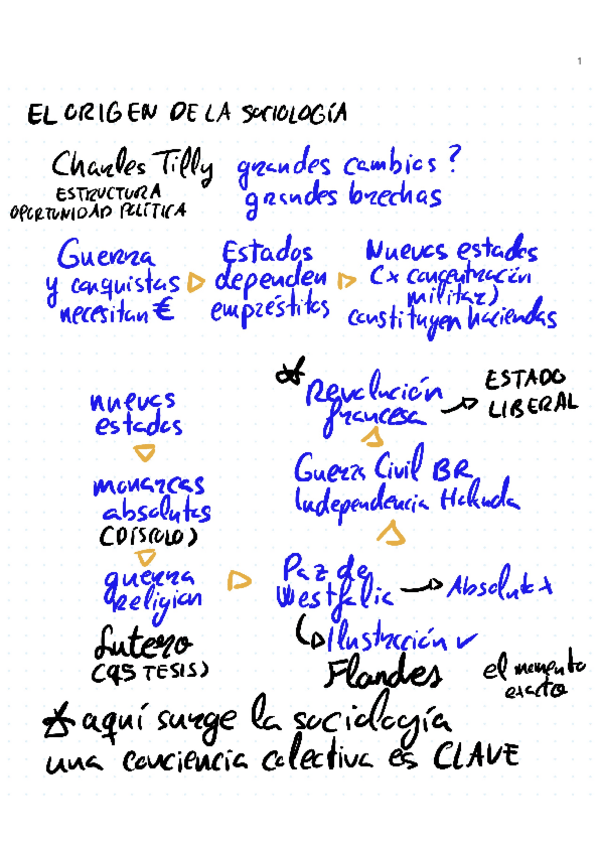 1
EL ORIGEN DE LA SOCIOLOGÍA
Charles Tilly
ESTRUCTURA
OPORTUNIDAD POLÍTICA
grandes cambios?
grandes brechas
Guerra
y conquistas
necesitan €
Estados
dependen
empréstitos
Nuevos estados
(x concentración
militar)
constituyen haciendas
nuevos
estados
monarcas
absolutos
(DÍSCOLO)
guerra
religion
Lutero
(95 TESIS)
Revolución
francesa
ESTADO
LIBERAL
Guerra Civil BR
Independencia Holanda
Paz de
Westfalia
Absolut x
Ilustración ✓
Flandes
el momento
exacto
aquí surge la sociología
una conciencia colectiva es CLAVE